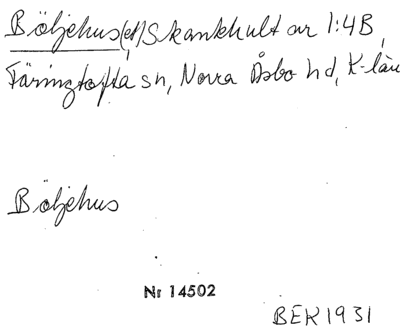 Böljehus(et) Skankhult ar 1:4B,
Färingtofta sn, Norra Åsbo hd, K-län
Böljehus
Nr 14502
BEK 1931